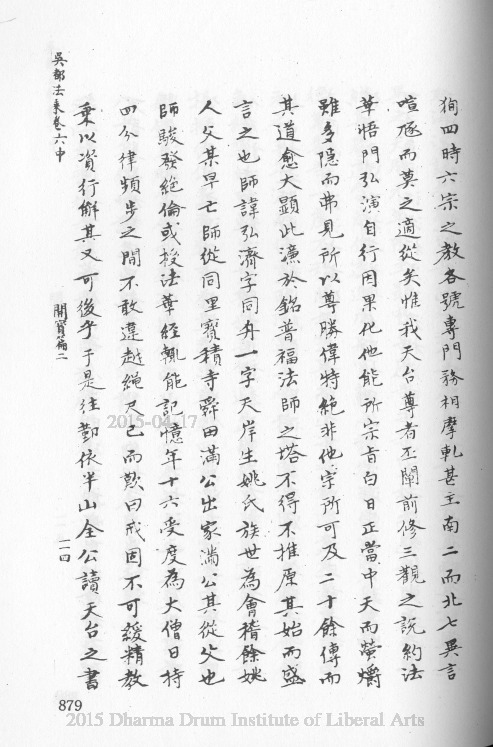 狥四時六宗之教各號專門務相摩軋甚至南二而北七異言
喧豗而莫之適從矣惟我天台尊者丕闡前修三觀之說約法
華悟門弘演自行因果化他能所宗旨白日正當中天而螢爝
雖多隱而弗見所以尊勝偉特絕非他宗所可及二十餘傳而
其道愈大顯此濂於銘普福法師之塔不得不推原其始而盛
言之也師諱弘濟字同舟一字天岸生姚氏族世為會稽餘姚
人父某早亡師從同里寶積寺舜田滿公出家滿公其從父也
師駿發絕倫或授法華經輒能記憶年十六受度為大僧日持
四分律頻步之間不敢違越繩尺已而歎曰戒固不可緩精教
乘以資行解其又可後乎于是往鄞依半山全公讀天台之書
吳都法乘卷六中
開寶篇二
二一四
879
2015-04-17
2015 Dharma Drum Institute of Liberal Arts